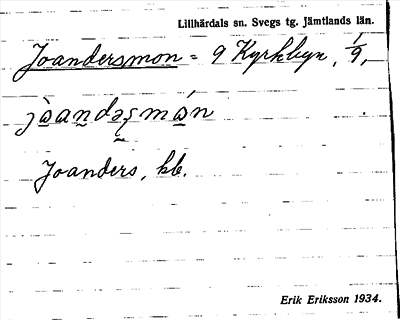 Lillhärdals sn. Svegs tg. Jämtlands län.
Joandersmon = 9 Kyrkbyn, 1/9,
Joanders, hb.
Erik Eriksson 1934.